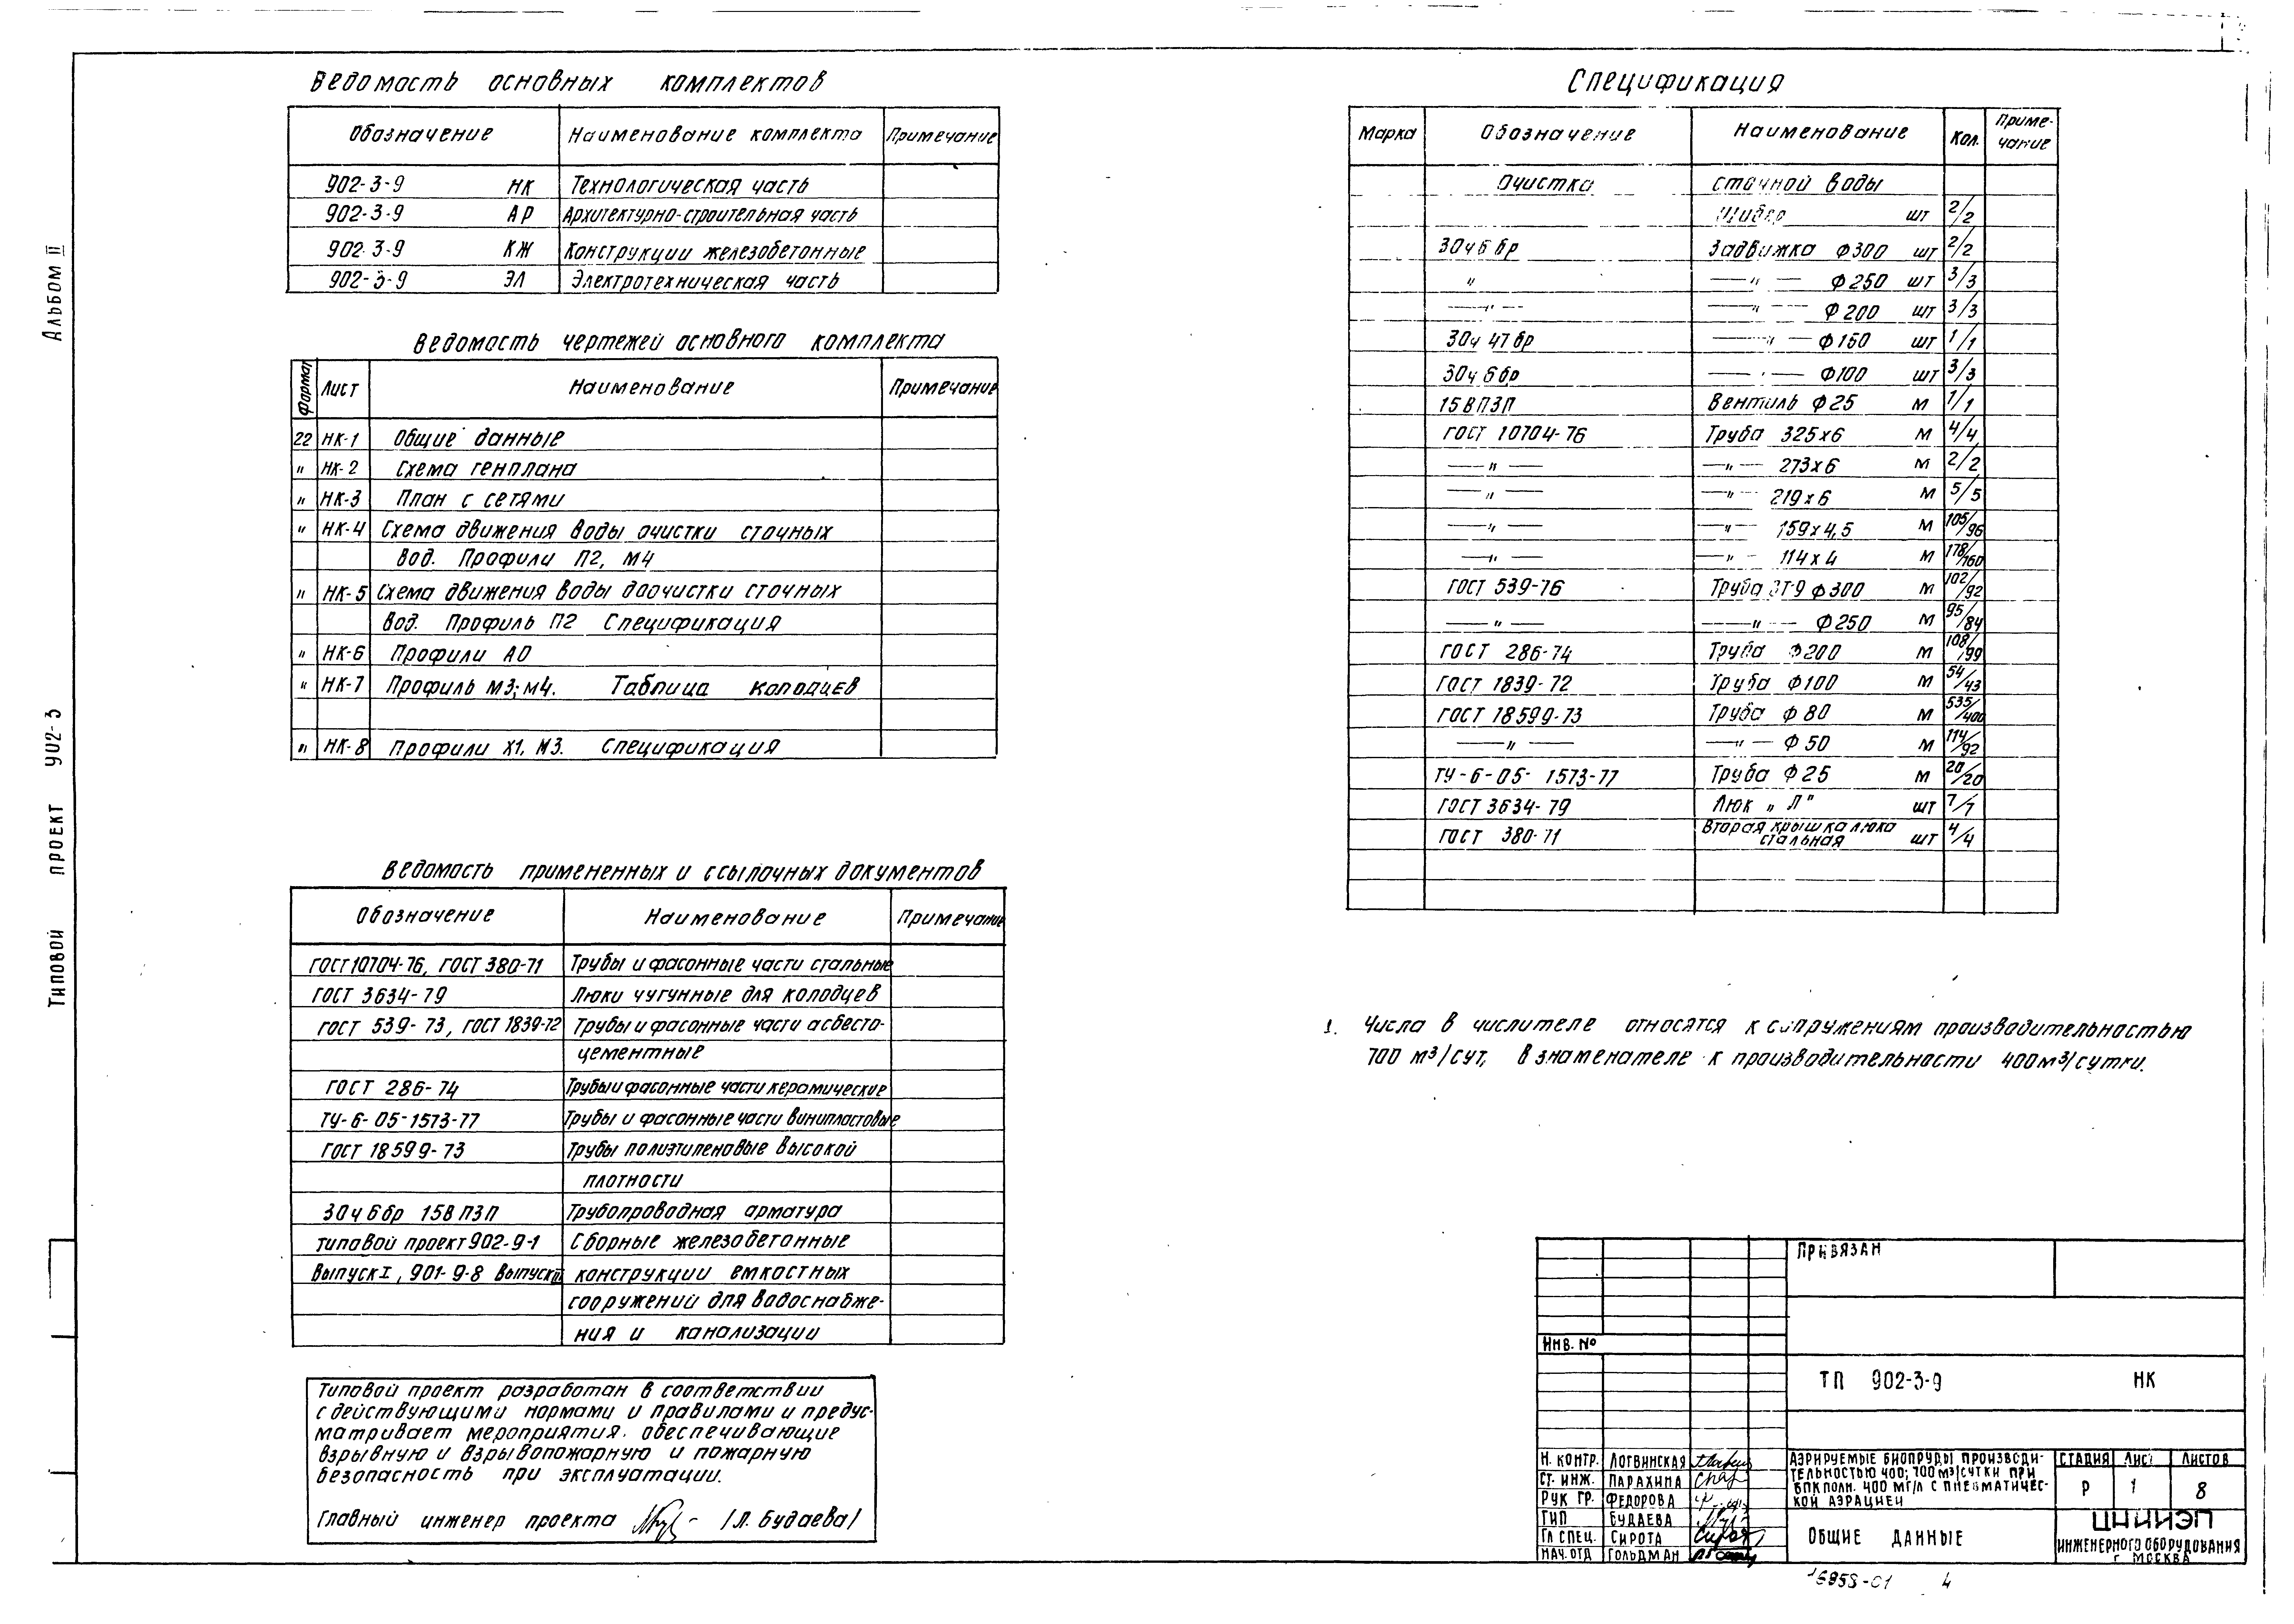 Альбом II
Типовой проект 902-3
Ведомость основных комплектов
Обозначение Наименование комплекта Примечание
902-3-9 НК Технологическая часть
902-3-9 АР Архитектурно-строительная часть
902-3-9 КЖ Конструкции железобетонные
902-3-9 ЭЛ Электротехническая часть
Ведомость чертежей основного комплекта
Формат Лист Наименование Примечание
22 НК-1 Общие данные
" НК-2 Схема генплана
" НК-3 План с сетями
" НК-4 Схема движения воды очистки сточных
вод. Профили П2, М4
" НК-5 Схема движения воды доочистки сточных
вод. Профиль П2 Спецификация
" НК-6 Профили А0
" НК-7 Профиль М3; М4. Таблица колодцев
" НК-8 Профили Х1, М3. Спецификация
Ведомость примененных и ссылочных документов
Обозначение Наименование Примечание
ГОСТ 10704-76, ГОСТ 380-71 Трубы и фасонные части стальные
ГОСТ 3634-79 Люки чугунные для колодцев
ГОСТ 539-73, ГОСТ 1839-72 Трубы и фасонные части асбесто-
цементные
ГОСТ 286-74 Трубы и фасонные части керамические
ТУ-6-05-1573-77 Трубы и фасонные части винипластовые
ГОСТ 18599-73 Трубы полиэтиленовые высокой
плотности
30ч6бр 15В П3П Трубопроводная арматура
типовой проект 902-9-1 Сборные железобетонные
Выпуск I, 901-9-8 Выпуск III конструкции емкостных
сооружений для водоснабже-
ния и канализации
Типовой проект разработан в соответствии
с действующими нормами и правилами и предус-
матривает мероприятия, обеспечивающие
взрывную и взрывопожарную и пожарную
безопасность при эксплуатации.
Главный инженер проекта /Л. Будаева/
Спецификация
Марка Обозначение Наименование Кол. Приме-
чание
Очистка сточной воды
Шибер шт 2/2
30ч6бр Задвижка Ф300 шт 2/2
" —"— Ф250 шт 3/3
—"— —"— Ф200 шт 3/3
30ч 47бр —"— Ф150 шт 1/1
30ч6бр —"— Ф100 шт 3/3
15ВП3П Вентиль Ф25 м 1/1
ГОСТ 10704-76 Труба 325х6 м 4/4
—"— —"— 273х6 м 2/2
—"— —"— 219х6 м 5/5
—"— —"— 159х4,5 м 105/96
—"— —"— 114х4 м 178/160
ГОСТ 539-76 Труба ВТ-9 Ф300 м 102/92
—"— —"— Ф250 м 95/84
ГОСТ 286-74 Труба Ф200 м 108/99
ГОСТ 1839-72 Труба Ф100 м 54/43
ГОСТ 18599-73 Труба Ф80 м 535/400
—"— —"— Ф50 м 114/92
ТУ-6-05-1573-77 Труба Ф25 м 20/20
ГОСТ 3634-79 Люк „Л" шт 7/7
ГОСТ 380-71 Вторая крышка люка
стальная шт 4/4
1. Числа в числителе относятся к сооружениям производительностью
700 м³/сут, в знаменателе к производительности 400м³/сутки.
Привязан
Инв. №
ТП 902-3-9 НК
Н. контр. Логвинская
Ст. инж. Парахина
Рук гр. Федорова
ГИП Будаева
Гл спец. Сирота
Нач. отд Гольдман
Аэрируемые биопруды производи-
тельностью 400; 700 м3/сутки при
БПКполн. 400 мг/л с пневматичес-
кой аэрацией
Стадия Лист Листов
Р 1 8
Общие данные
ЦНИИЭП
инженерного оборудования
г. Москва
16958-01 4